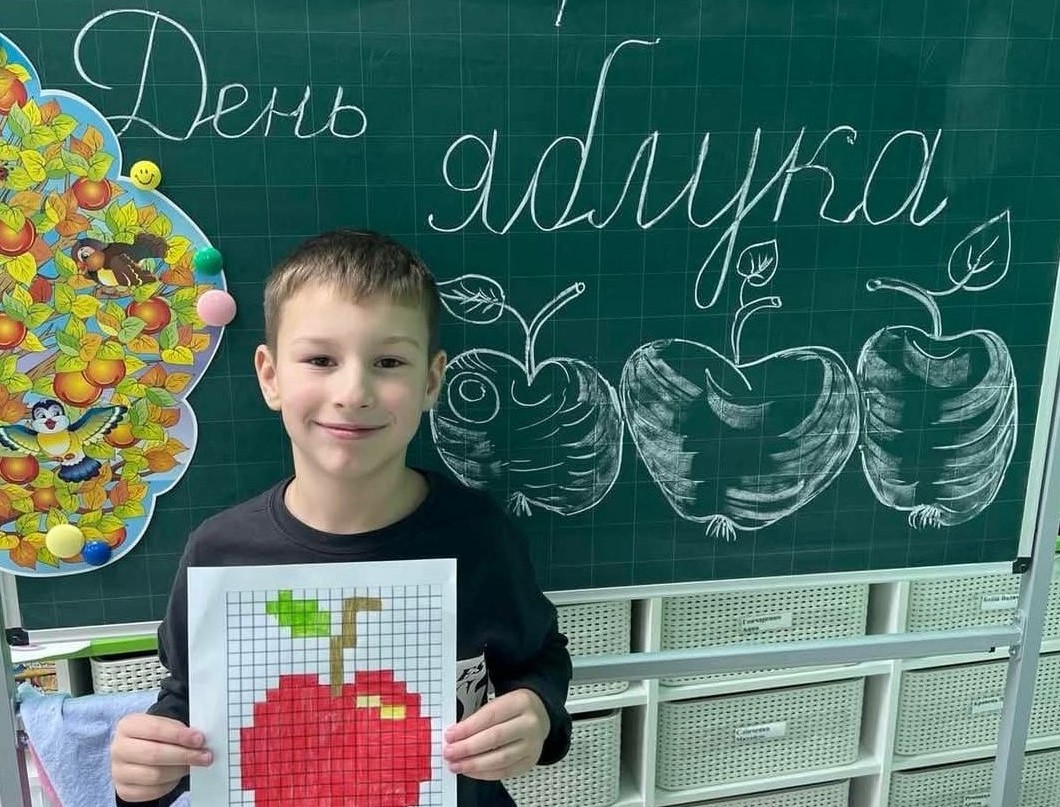 День
яблука